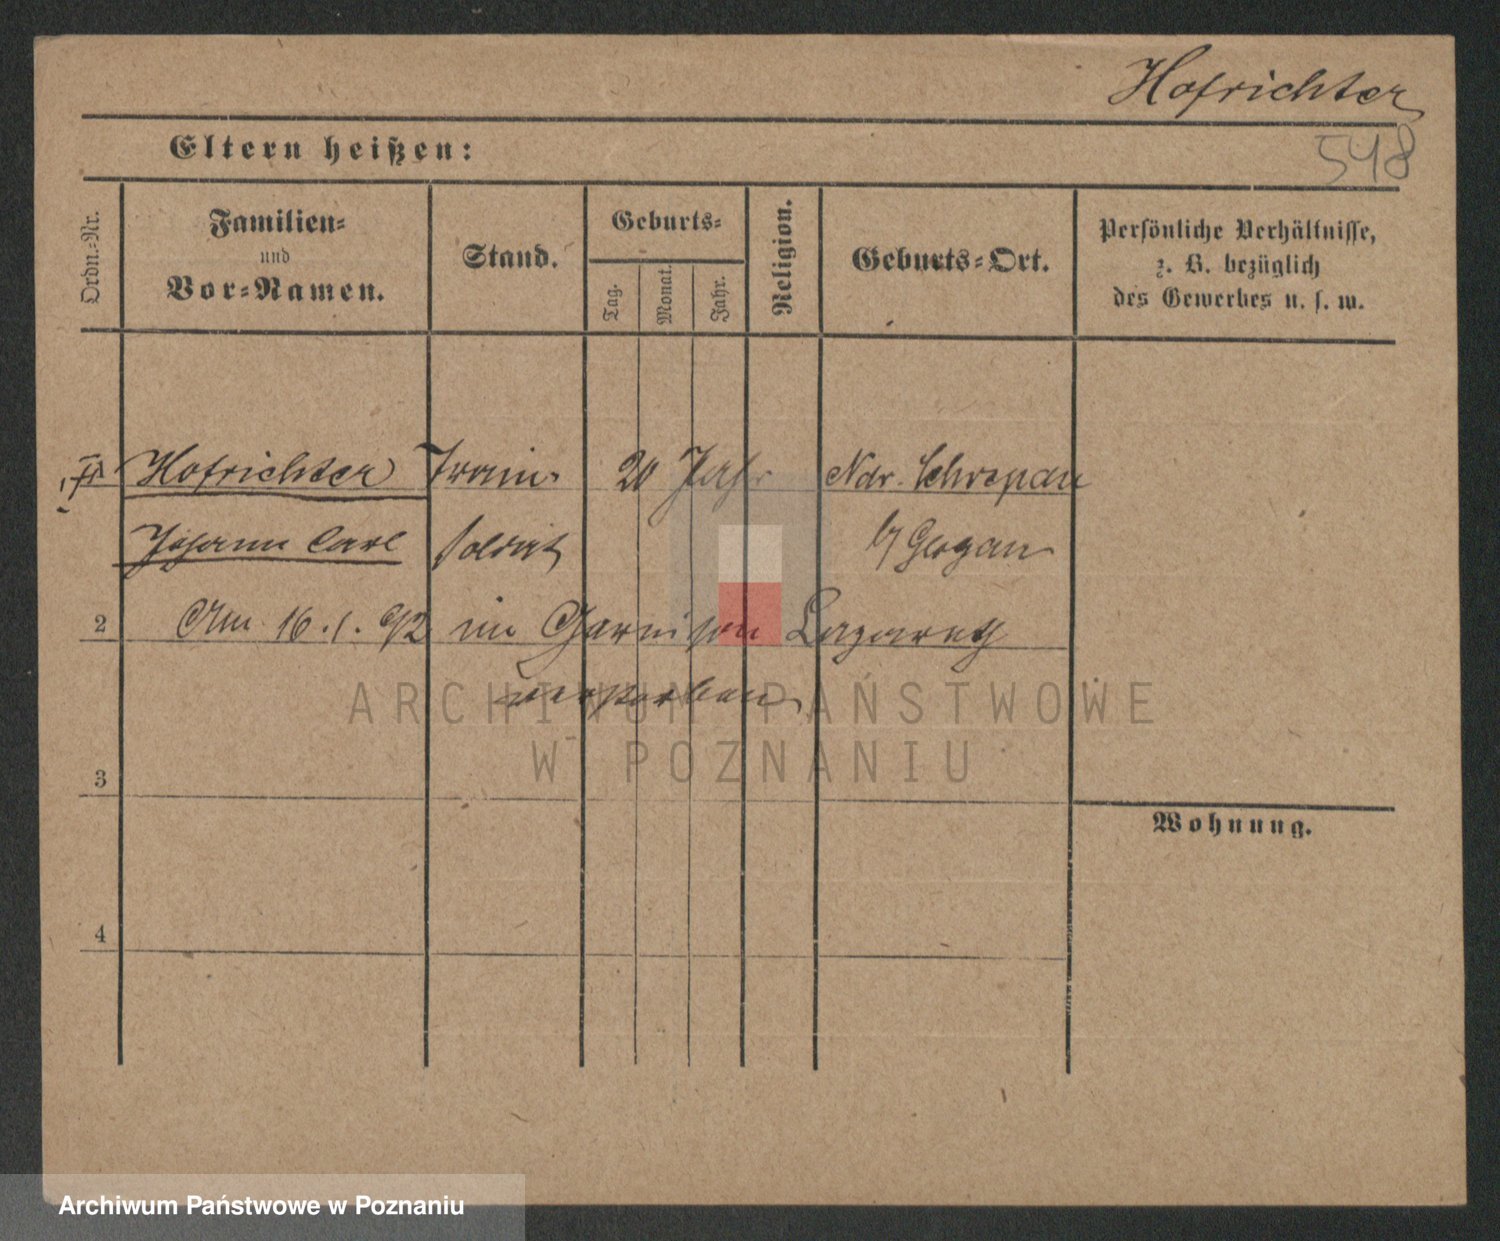 Hofrichter
548
Eltern heißen:
Ordn.-Nr.
Familien-
und
Vor-Namen.
Stand.
Geburts-
Tag.
Monat.
Jahr.
Religion.
Geburts-Ort.
Persönliche Verhältnisse,
z. B. bezüglich
des Gewerbes u. s. w.
Hofrichter Train- 20 Jahr Ndr. Schrepau
Johann Carl soldat b/ Glogau
2 Am 16.1.92 im Garnison Lazareth
verstorben
ARCHIWUM PAŃSTWOWE
W POZNANIU
3
Wohnung.
4
Archiwum Państwowe w Poznaniu